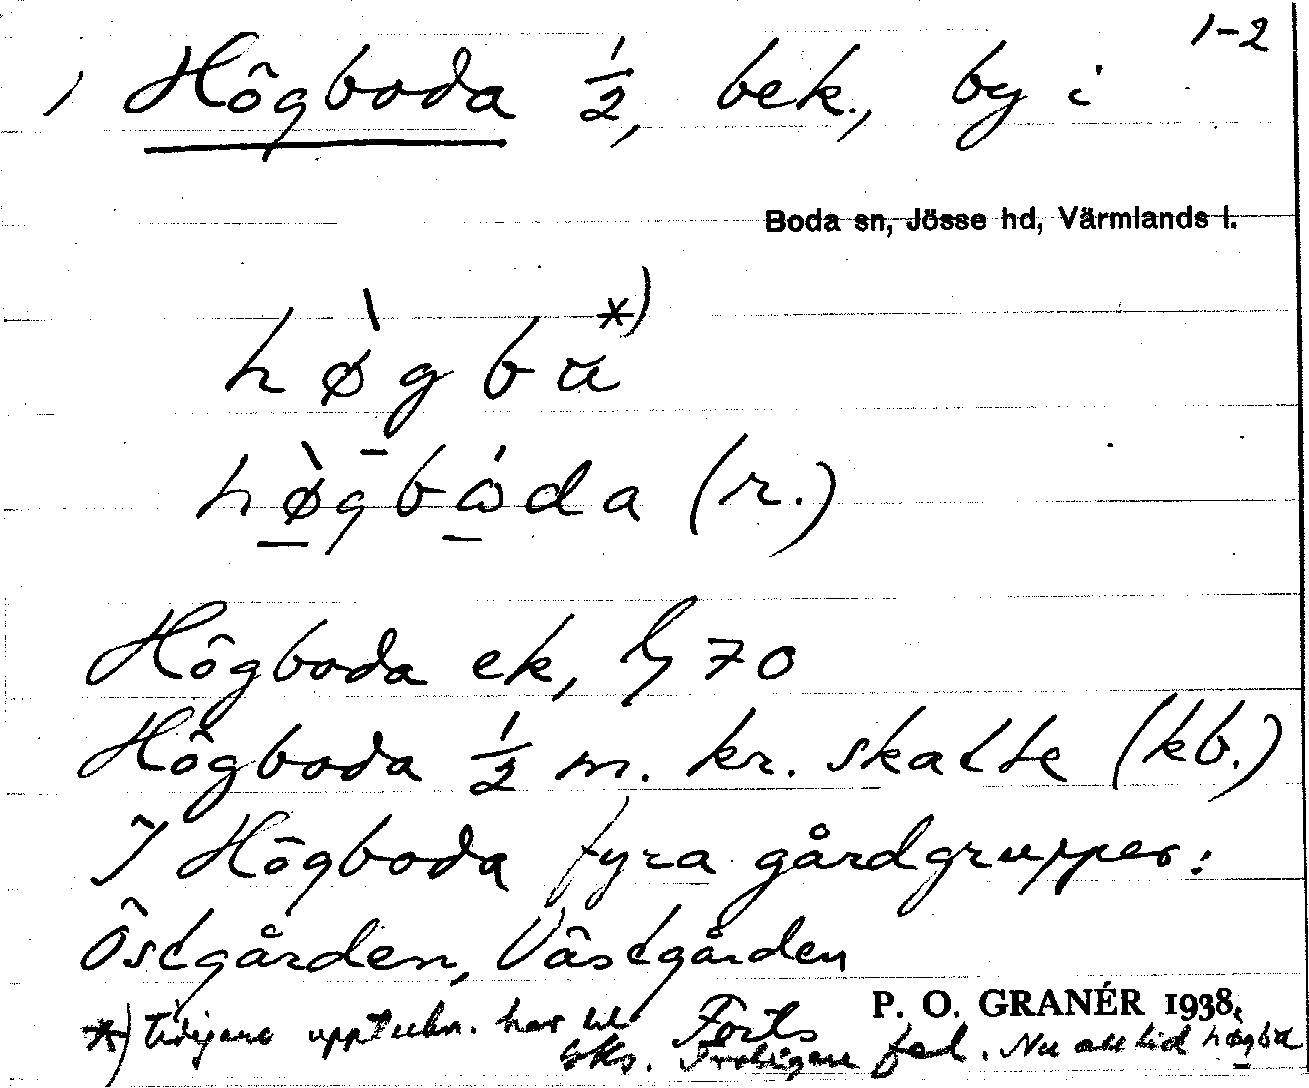 1-2
1 Högboda 1/2, bek., by i
Boda sn, Jösse hd, Värmlands l.
hø̀gba *)
hø̀gbώda (r.)
Högboda ek, G 70
Högboda 1/2 m. kr. skatte (kb.)
I Högboda fyra gårdgrupper:
Östgården, Västgården
P. O. GRANÉR 1938.
*) tidigare uppteckn. har
Forts
fel. Nu alltid høgba